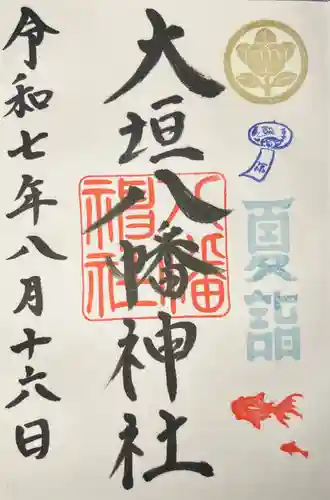 夏詣
大垣八幡神社
八幡神社
令和七年八月十六日